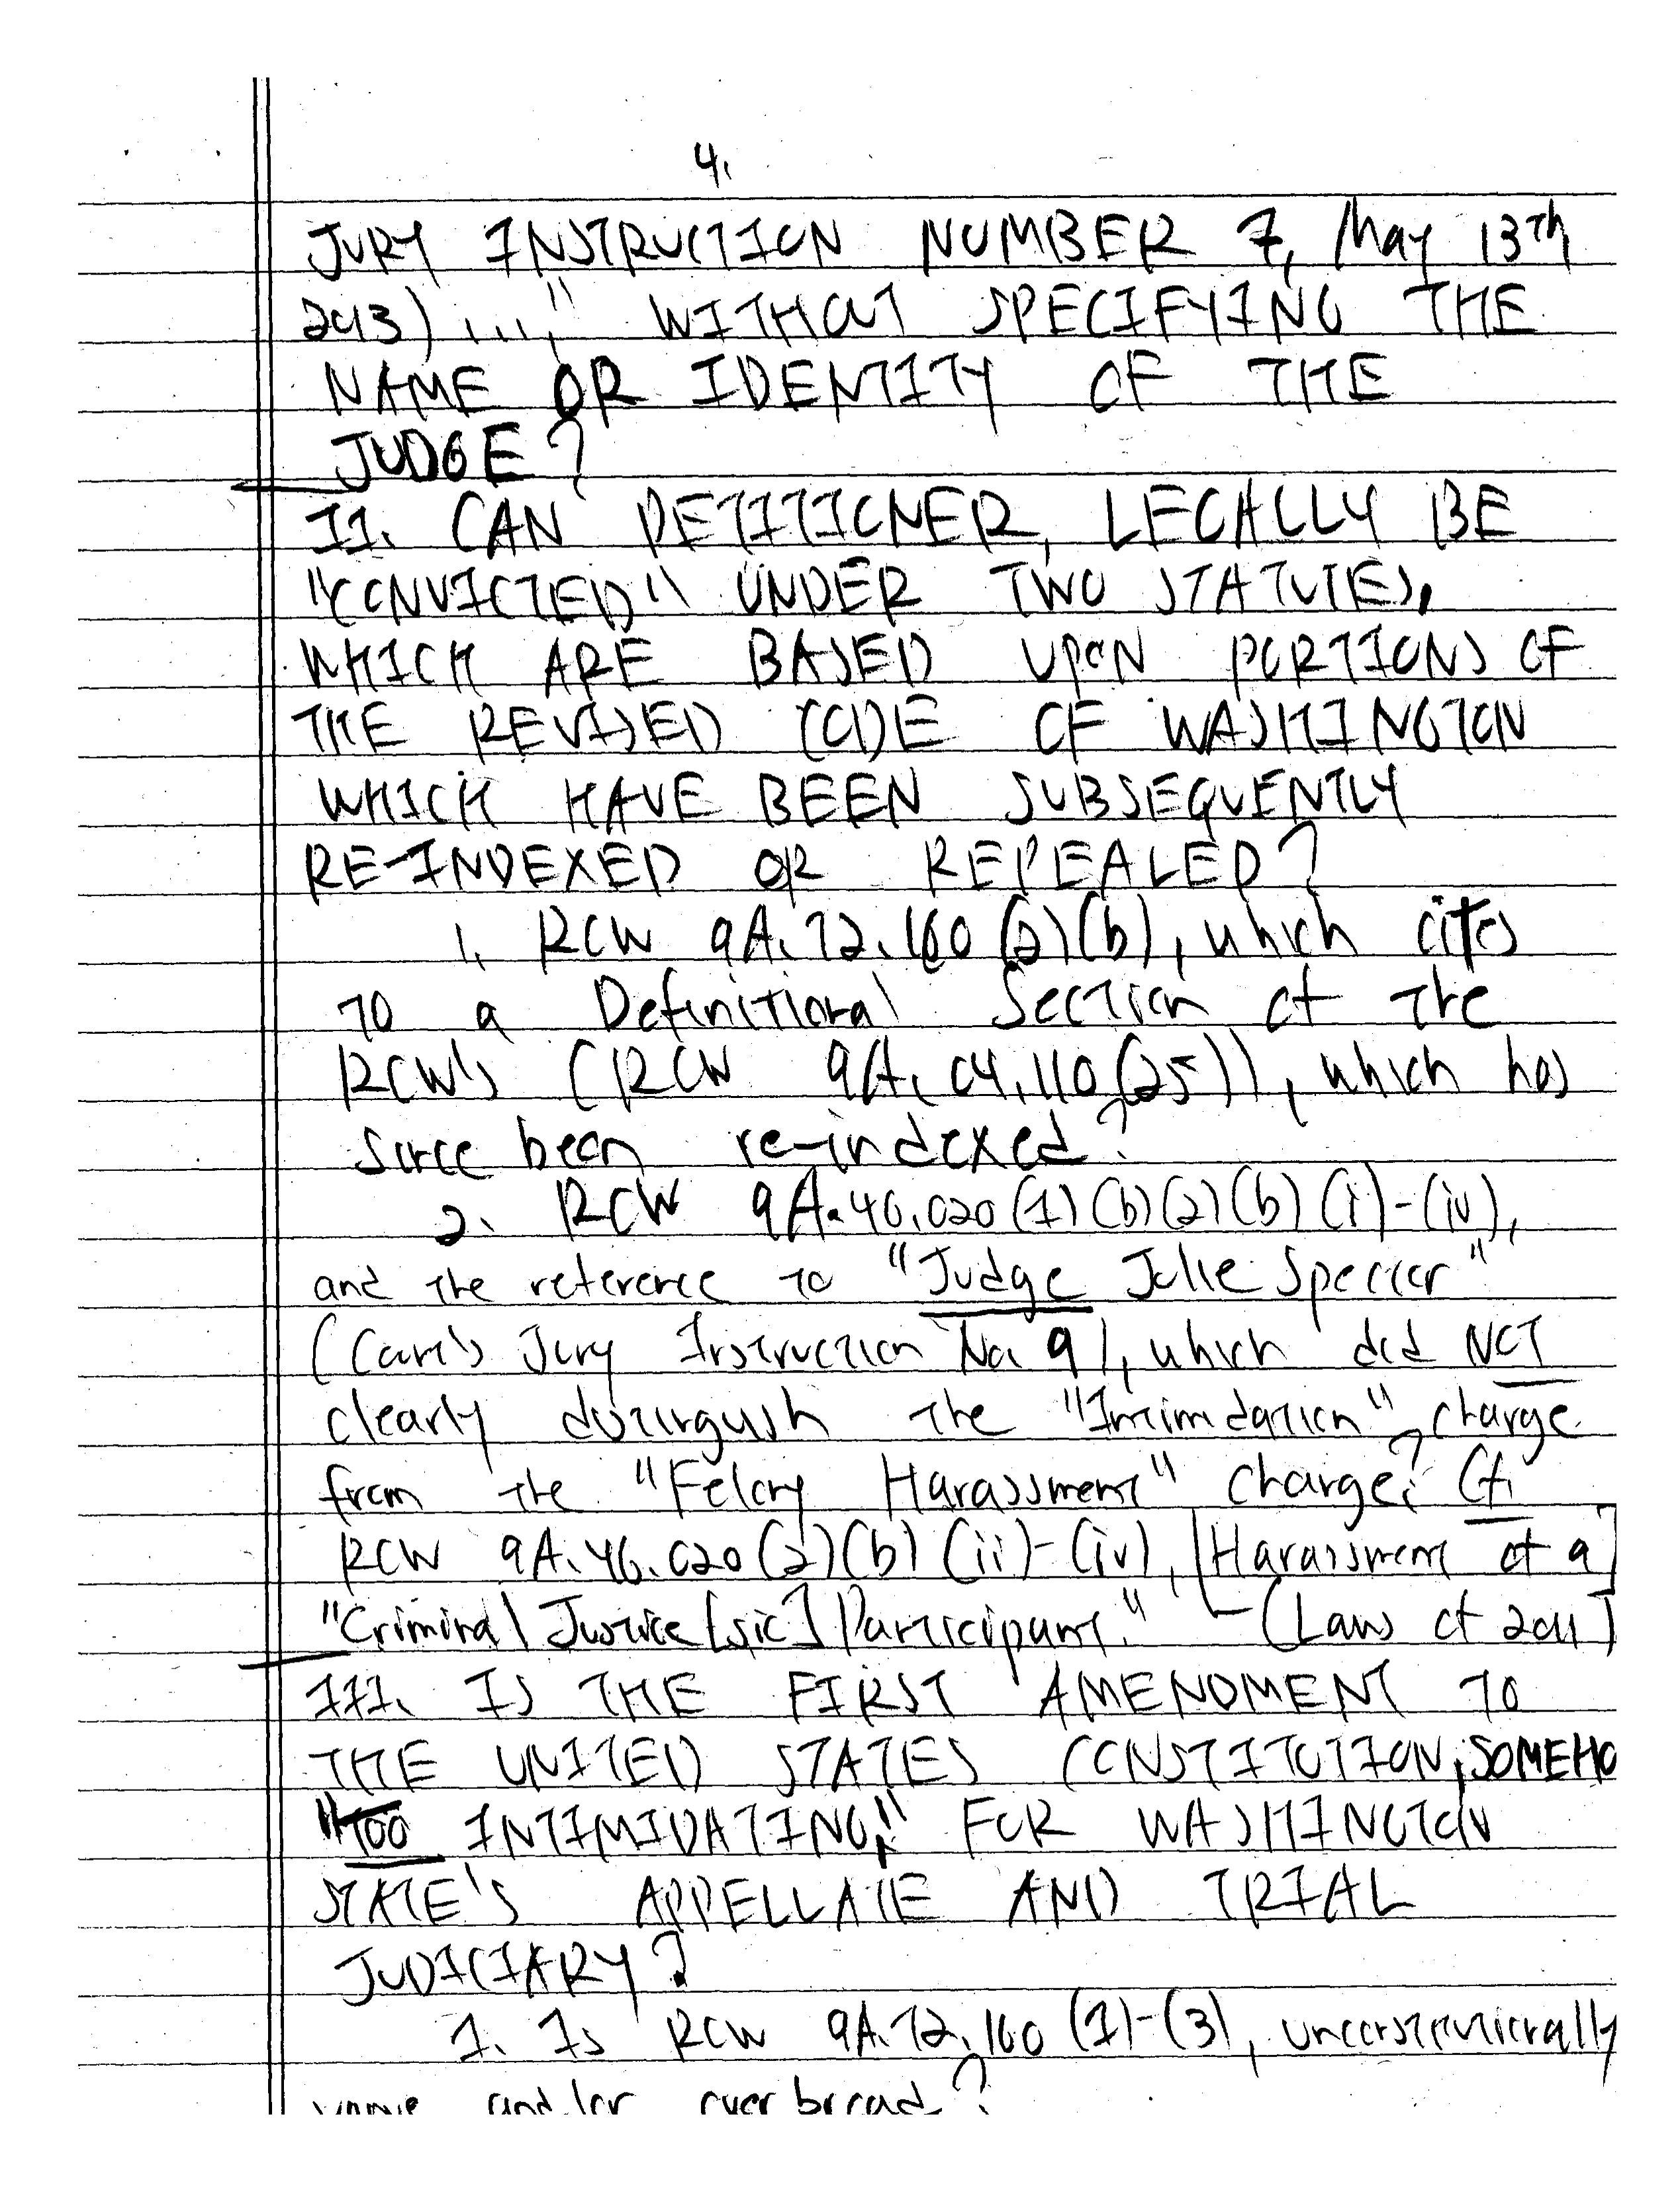 4.
JURY INSTRUCTION NUMBER 7, May 13th
2013) ...," WITHOUT SPECIFYING THE
NAME OR IDENTITY OF THE
JUDGE?
II. CAN PETITIONER, LEGALLY BE
"CONVICTED" UNDER TWO STATUTES,
WHICH ARE BASED UPON PORTIONS OF
THE REVISED CODE OF WASHINGTON
WHICH HAVE BEEN SUBSEQUENTLY
RE-INDEXED OR REPEALED?
1. RCW 9A.72.160(2)(b), which cites
to a Definitional Section of the
RCW's (RCW 9A.04.110(25)), which has
since been re-indexed?
2. RCW 9A.46.020(1)(b)(2)(b)(i)-(iv),
and the reference to "Judge Julie Spector"
(Court's Jury Instruction No. 9), which did NOT
clearly distinguish the "Intimidation" charge
from the "Felony Harassment" charge? Cf.
RCW 9A.46.020(2)(b)(ii)-(iv), [Harassment of a]
"Criminal Justice [sic] Participant." (Laws of 2011)
III. IS THE FIRST AMENDMENT TO
THE UNITED STATES CONSTITUTION, SOMEHO
"TOO INTIMIDATING," FOR WASHINGTON
STATE'S APPELLATE AND TRIAL
JUDICIARY?
1. Is RCW 9A.72.160(1)-(3), unconstitutionally
vague and/or overbroad?